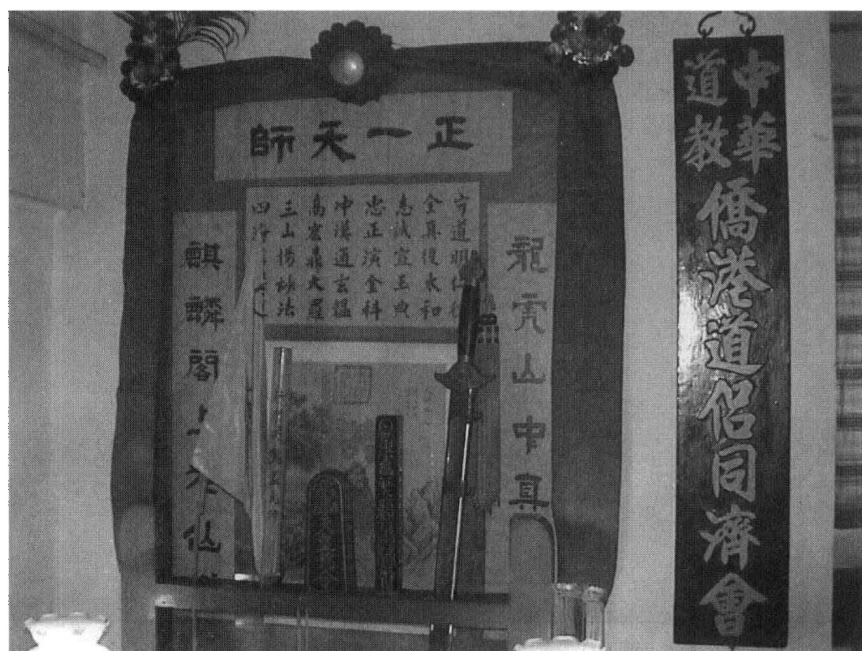 正一天師
龍虎山中真
守道明仁德
全真復太和
志誠宣玉典
忠正演金科
冲漢通玄韞
高宏鼎大羅
三山揚妙法
四海
麒麟閣上 仙
中華
道教
僑港道侶同濟會